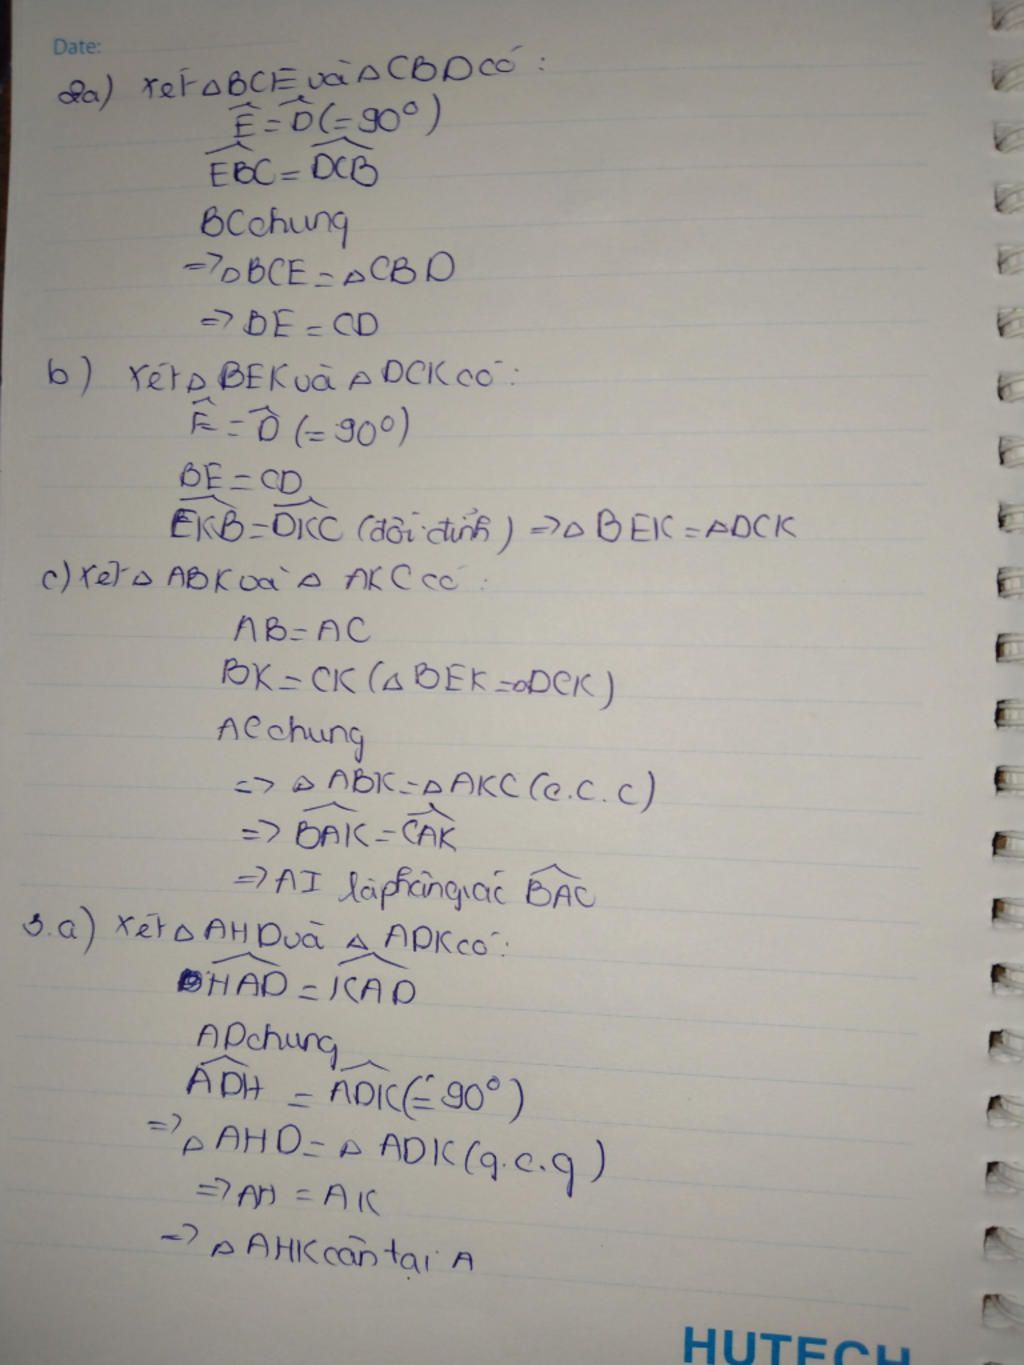 Date:
2a) Xét ΔBCE và ΔCBD có:
Ê = D̂ (= 90°)
EBC = DCB
BC chung
=> ΔBCE = ΔCBD
=> BE = CD
b) Xét Δ BEK và Δ DCK có:
Ê = D̂ (= 90°)
BE = CD
EKB = DKC (đối đỉnh) => Δ BEK = ΔDCK
c) Xét Δ ABK và Δ AKC có:
AB = AC
BK = CK (Δ BEK = ΔDCK)
AC chung
=> Δ ABK = Δ AKC (c.c.c)
=> BAK = CAK
=> AI là phân giác BAC
3.a) Xét Δ AHD và Δ ADK có:
HAD = KAD
AD chung
ADH = ADK (= 90°)
=> Δ AHD = Δ ADK (g.c.g)
=> AH = AK
=> Δ AHK cân tại A
HUTECH